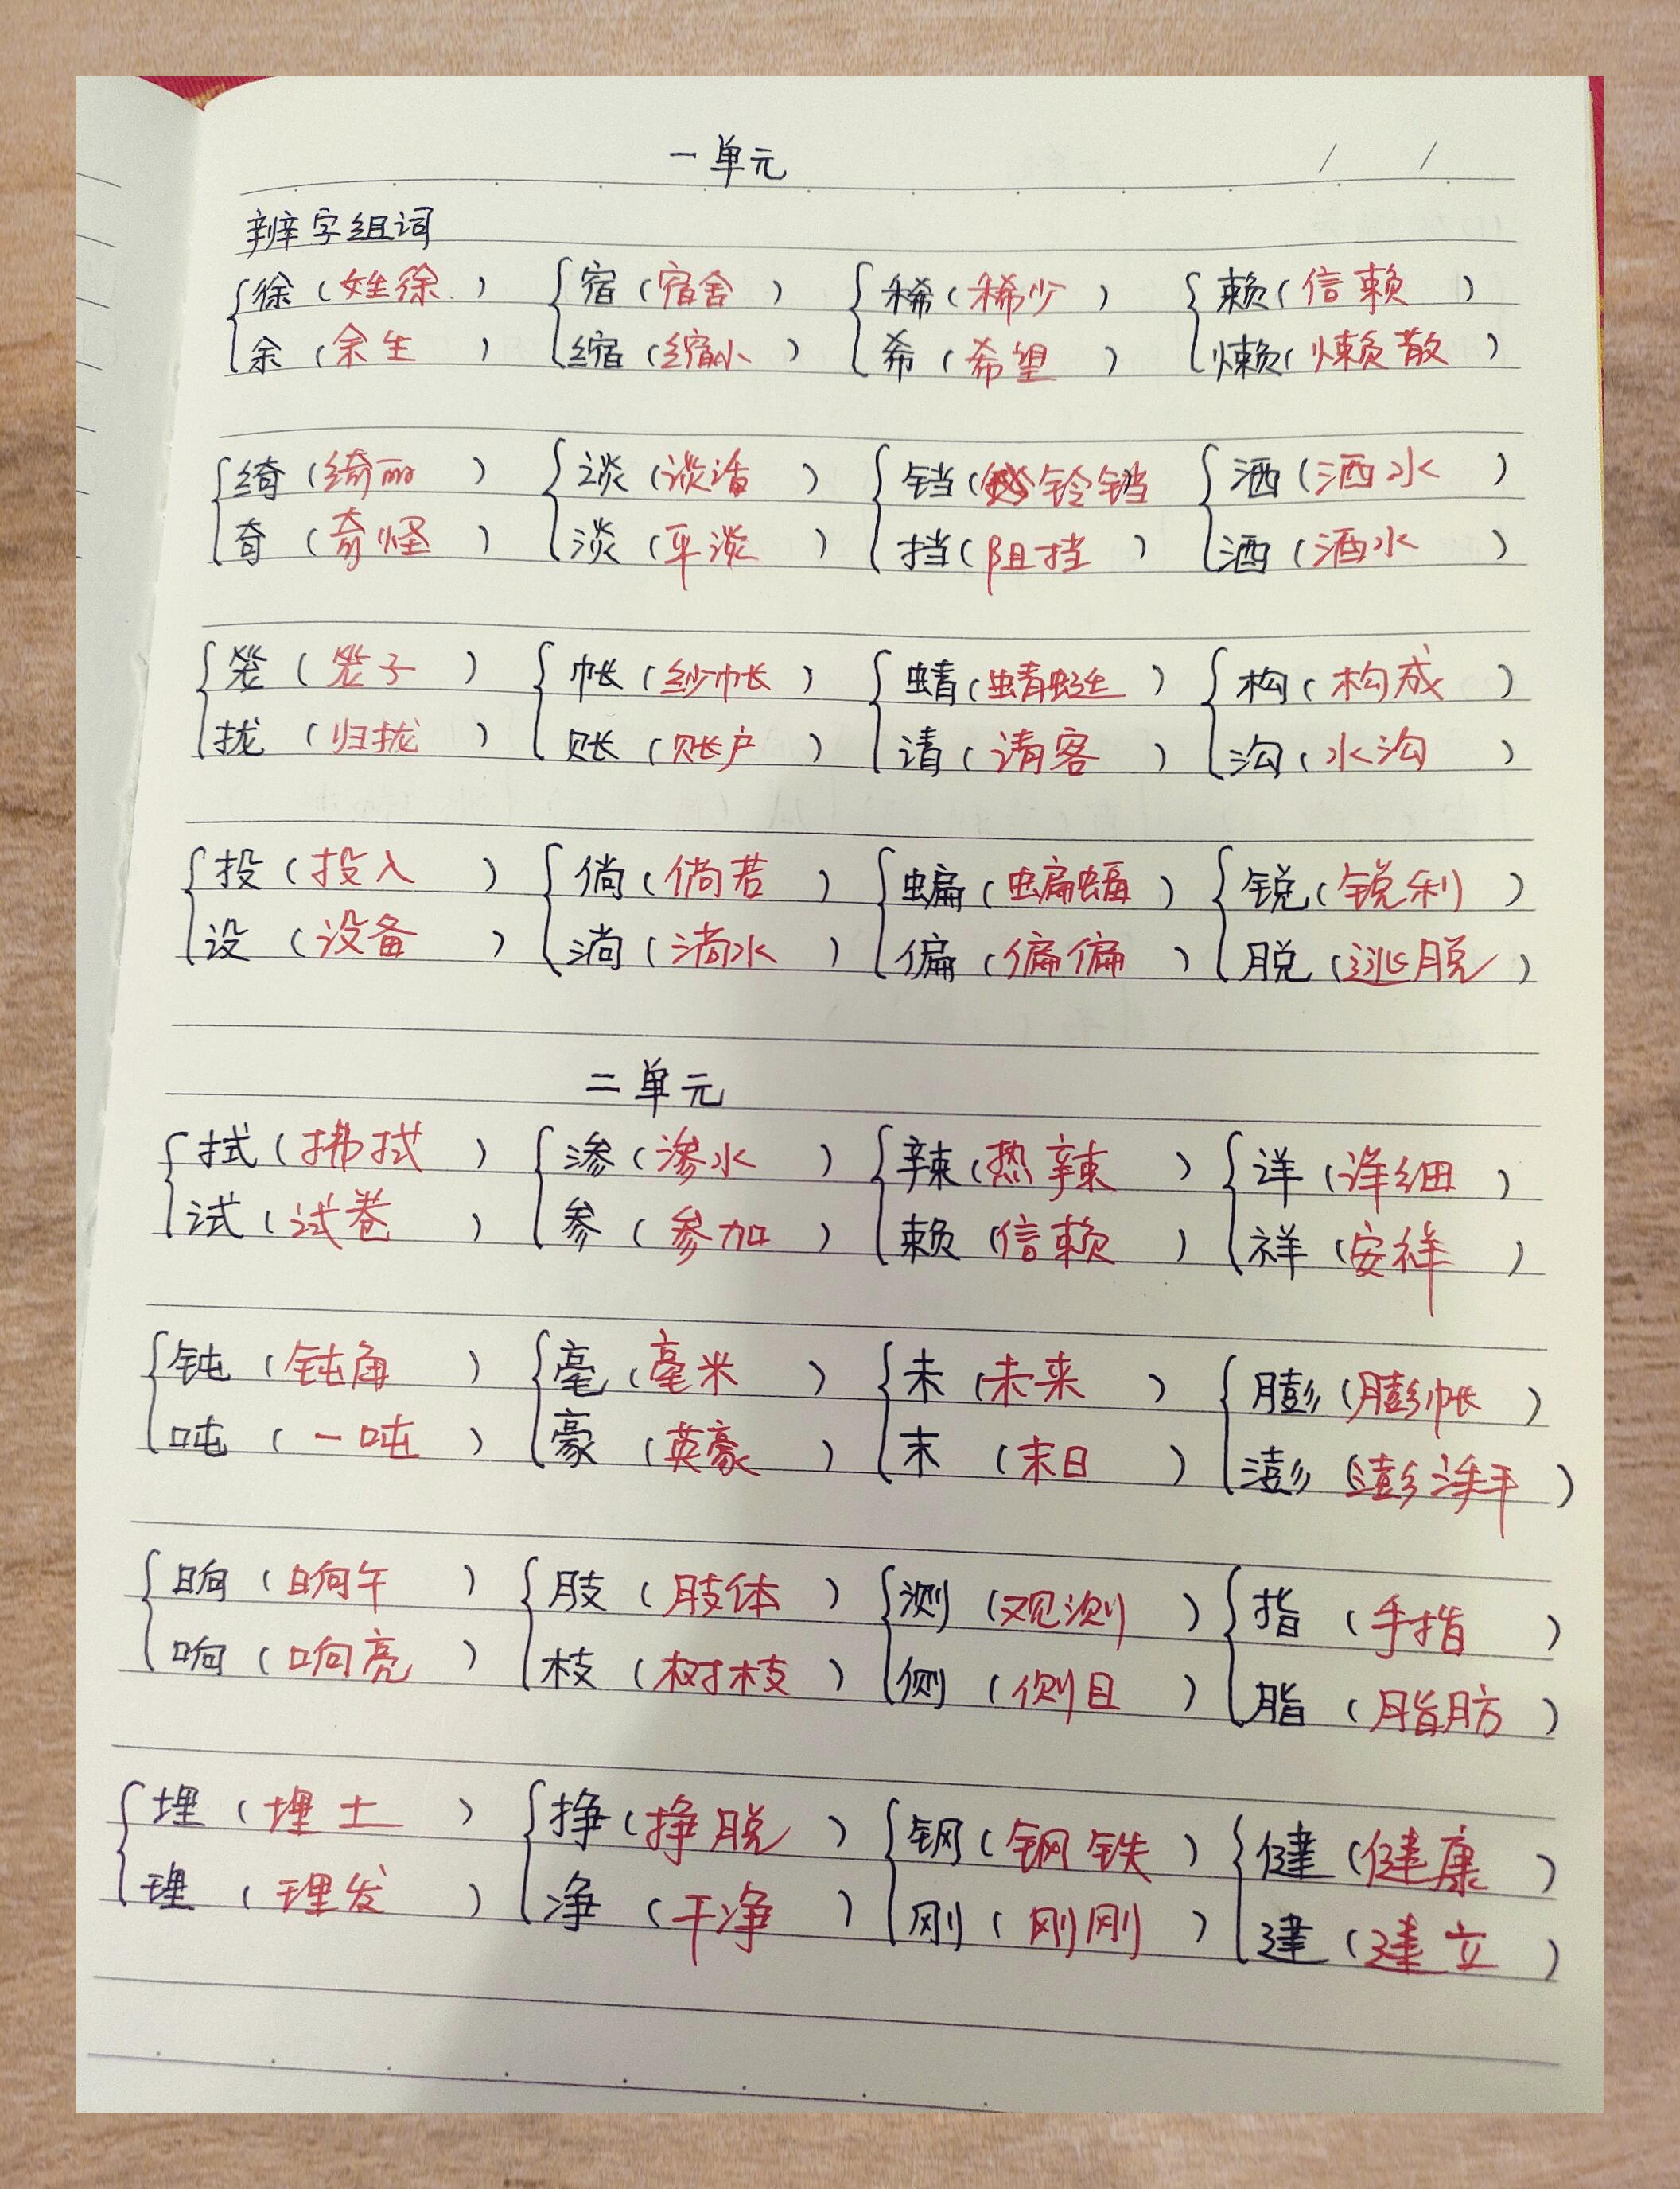 一单元 / /
辨字组词
徐(姓徐) 宿(宿舍) 稀(稀少) 赖(信赖)
余(余生) 缩(缩小) 希(希望) 懒(懒散)
绮(绮丽) 谈(谈话) 铛(铃铛) 洒(洒水)
奇(奇怪) 淡(平淡) 挡(阻挡) 酒(酒水)
笼(笼子) 帐(纱帐) 蜻(蜻蜓) 构(构成)
拢(归拢) 账(账户) 请(请客) 沟(水沟)
投(投入) 倘(倘若) 蝙(蝙蝠) 锐(锐利)
设(设备) 淌(淌水) 偏(偏偏) 脱(逃脱)
二单元
拭(拂拭) 渗(渗水) 辣(热辣) 详(详细)
试(试卷) 参(参加) 赖(信赖) 祥(安祥)
钝(钝角) 毫(毫米) 未(未来) 膨(膨帐)
吨(一吨) 豪(英豪) 末(末日) 澎(澎湃)
晌(晌午) 肢(肢体) 测(观测) 指(手指)
响(响亮) 枝(树枝) 侧(侧目) 脂(脂肪)
埋(埋土) 挣(挣脱) 钢(钢铁) 健(健康)
理(理发) 净(干净) 刚(刚刚) 建(建立)